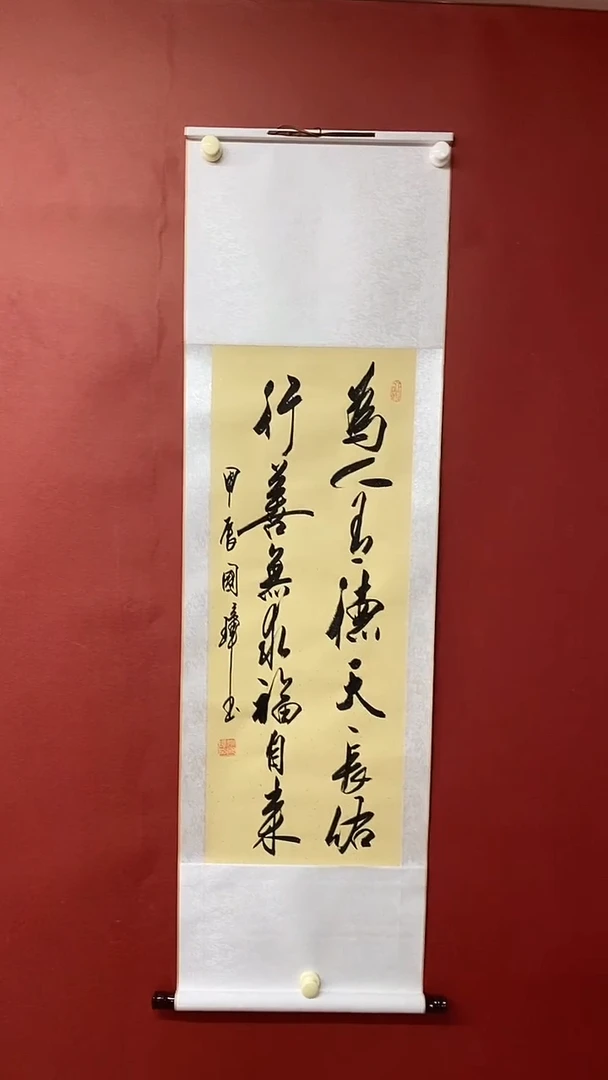 為人有德天長佑
行善無求福自來
甲辰國璋书